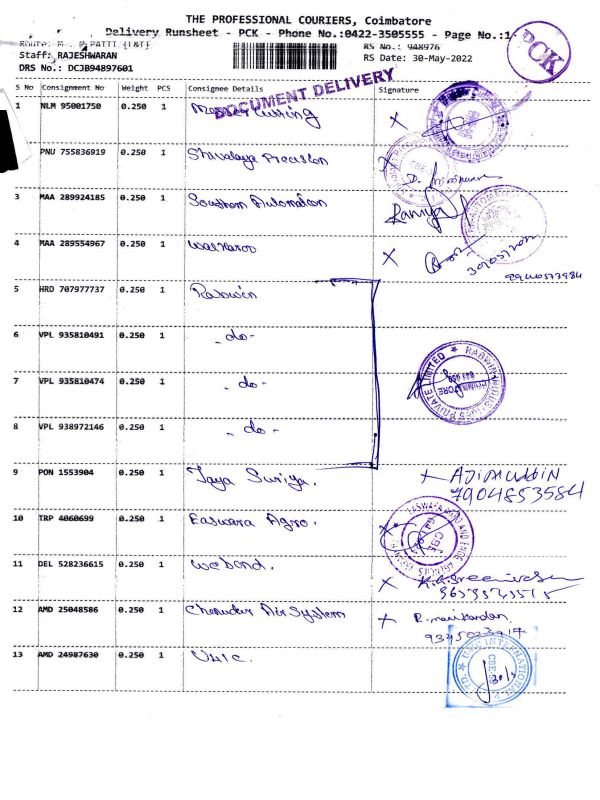 THE PROFESSIONAL COURIERS, Coimbatore
Delivery Runsheet - PCK - Phone No.:0422-3505555 - Page No.:1
PCK
Staff: RAJESHWARAN
RS No.: 948976
DRS No.: DCJB94897601
RS Date: 30-May-2022
DOCUMENT DELIVERY
S No Consignment No Weight PCS Consignee Details Signature
1 NLM 95001750 0.250 1
PNU 755836919 0.250 1 Shivalaya Precision
3 MAA 289924185 0.250 1 Southern Automation Ramya
4 MAA 289554967 0.250 1 Walkaroo
5 HRD 707977737 0.250 1 Rabwin
6 VPL 935810491 0.250 1 - do -
7 VPL 935810474 0.250 1 - do -
8 VPL 938972146 0.250 1 - do -
9 PON 1553904 0.250 1 Jaya Suriya.
7904853584
10 TRP 4060699 0.250 1 Easwara Agro.
11 DEL 528236615 0.250 1 Webond.
12 AMD 25048586 0.250 1 Air System R. manikandan
13 AMD 24987630 0.250 1